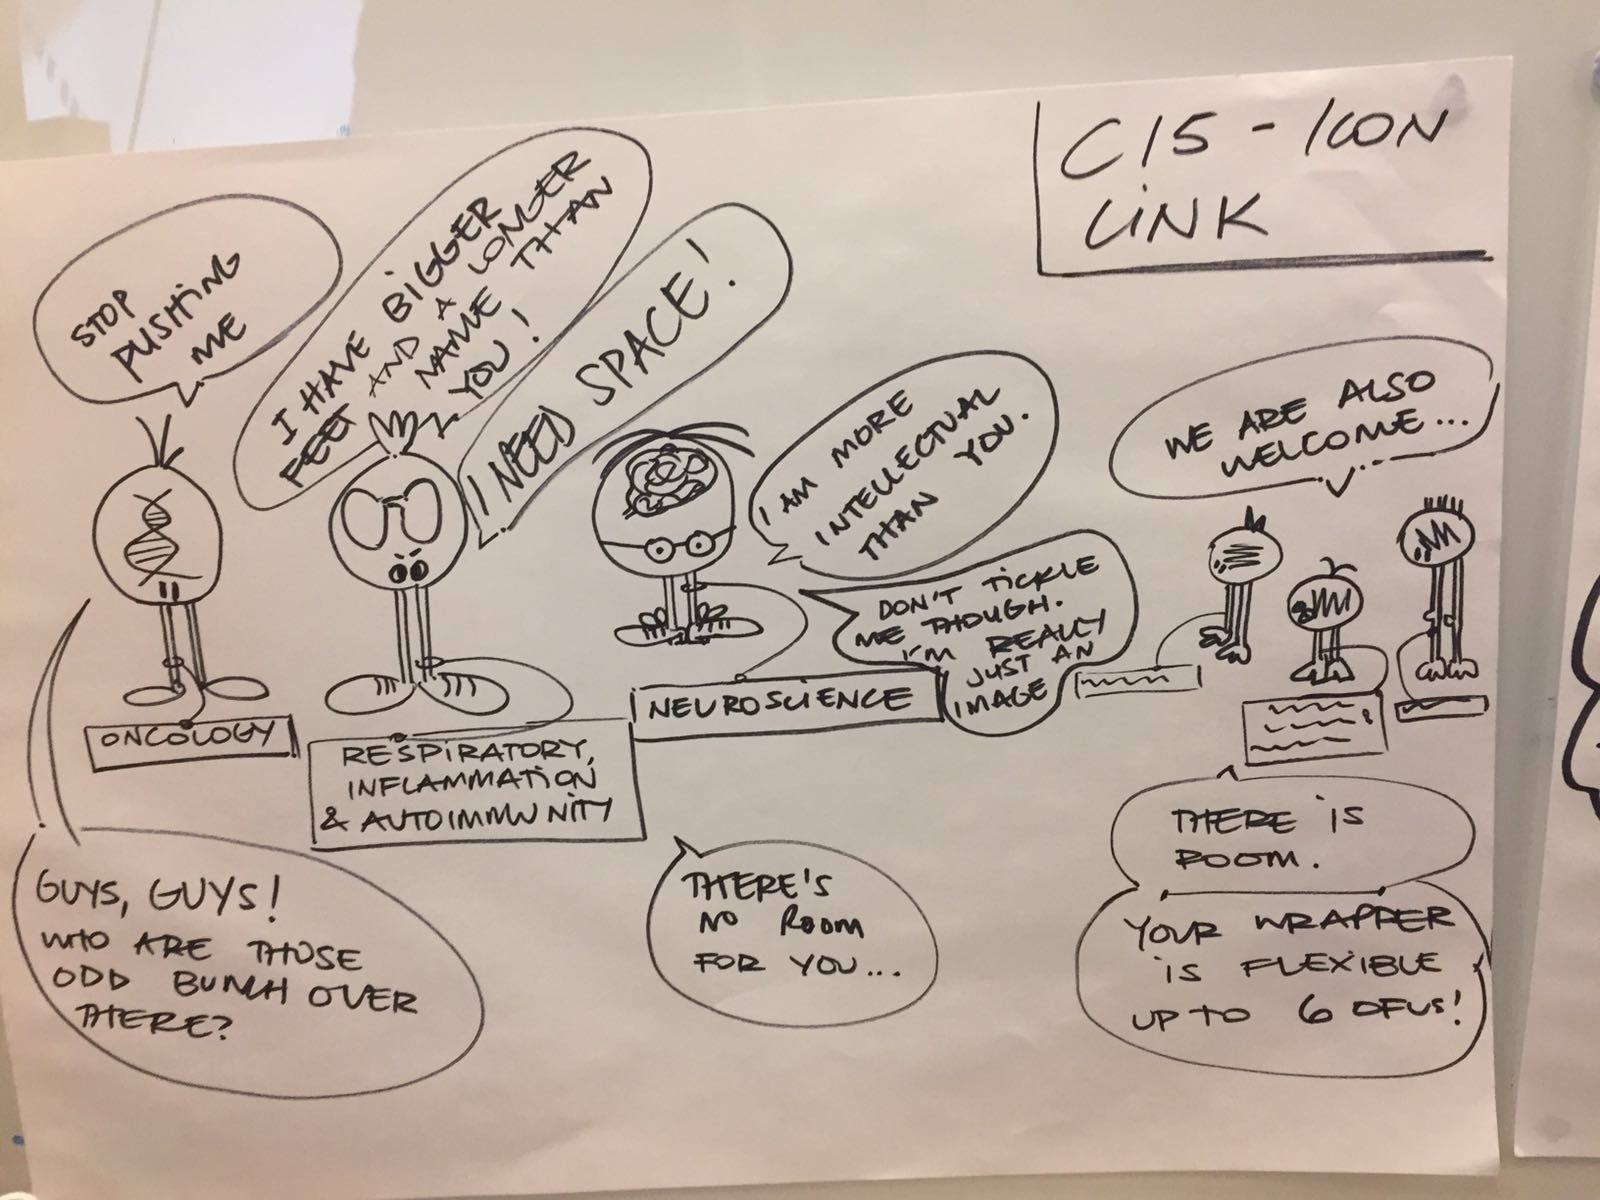 C15 - ICON
LINK
STOP
PUSHING
ME
I HAVE BIGGER
FEET AND A LONGER
NAME THAN
YOU!
I NEED SPACE!
I AM MORE
INTELLECTUAL
THAN YOU.
DON'T TICKLE
ME THOUGH.
I'M REALLY
JUST AN
IMAGE
WE ARE ALSO
WELCOME...
ONCOLOGY
RESPIRATORY,
INFLAMMATION
& AUTOIMMUNITY
NEUROSCIENCE
GUYS, GUYS!
WHO ARE THOSE
ODD BUNCH OVER
THERE?
THERE'S
NO ROOM
FOR YOU...
THERE IS
ROOM.
YOUR WRAPPER
IS FLEXIBLE
UP TO 6 OFUS!